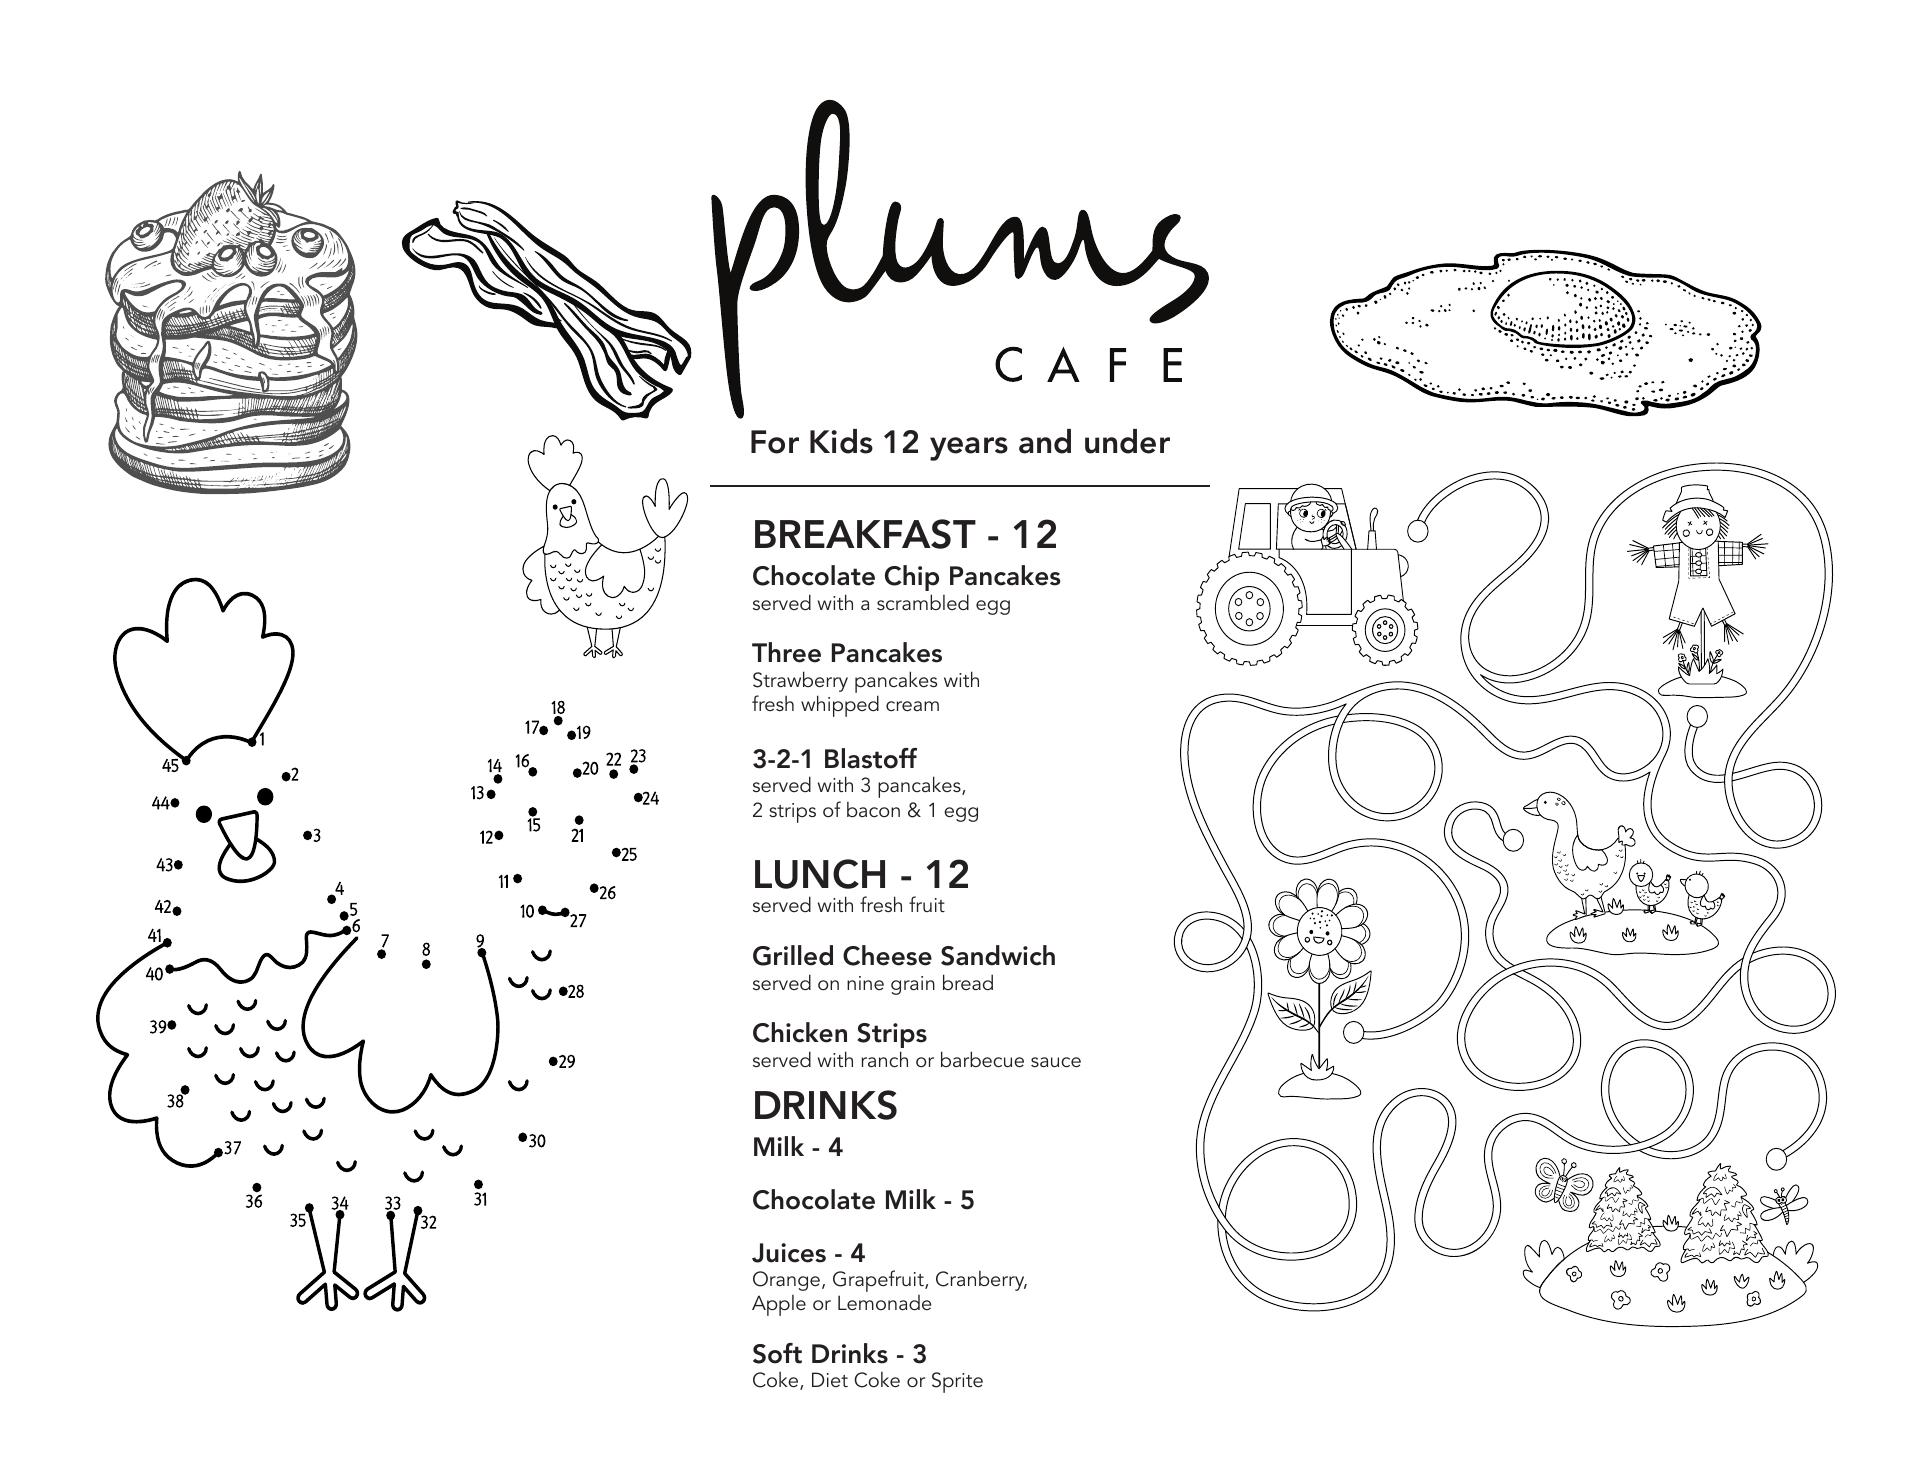 plums
CAFE
For Kids 12 years and under
BREAKFAST - 12
Chocolate Chip Pancakes
served with a scrambled egg
Three Pancakes
Strawberry pancakes with
fresh whipped cream
3-2-1 Blastoff
served with 3 pancakes,
2 strips of bacon & 1 egg
LUNCH - 12
served with fresh fruit
Grilled Cheese Sandwich
served on nine grain bread
Chicken Strips
served with ranch or barbecue sauce
DRINKS
Milk - 4
Chocolate Milk - 5
Juices - 4
Orange, Grapefruit, Cranberry,
Apple or Lemonade
Soft Drinks - 3
Coke, Diet Coke or Sprite
1
2
3
4
5
6
7
8
9
10
11
12
13
14
15
16
17
18
19
20
21
22
23
24
25
26
27
28
29
30
31
32
33
34
35
36
37
38
39
40
41
42
43
44
45